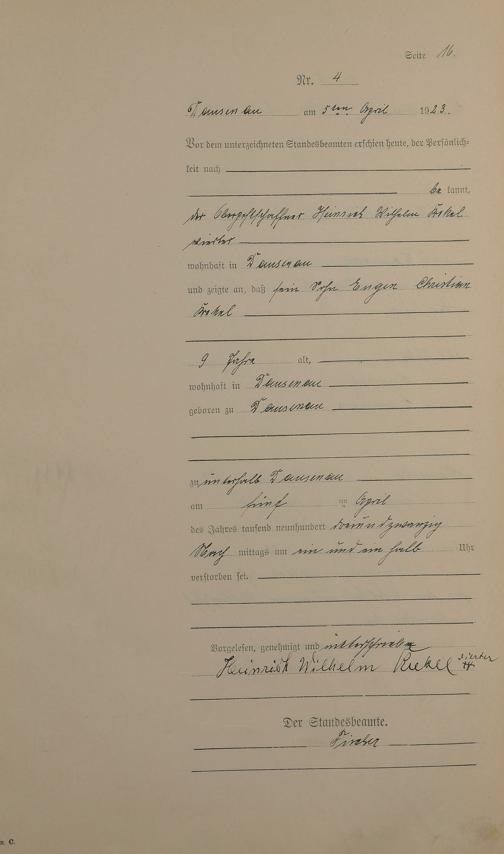 Seite 16.
Nr. 4
Dausenau am 5ten April 1923.
Vor dem unterzeichneten Standesbeamten erschien heute, der Persönlich-
keit nach
be kannt,
der Heinrich Wilhelm
vierter
wohnhaft in Dausenau
und zeigte an, daß sein Sohn Eugen Christian
9 Jahre alt,
wohnhaft in Dausenau
geboren zu Dausenau
zu unterhalb Dausenau
am fünf ten April
des Jahres tausend neunhundert dreiundzwanzig
Nach mittags um ein und ein halb Uhr
verstorben sei.
Vorgelesen, genehmigt und unterschrieben
Heinrich Wilhelm vierter
Der Standesbeamte.
C.